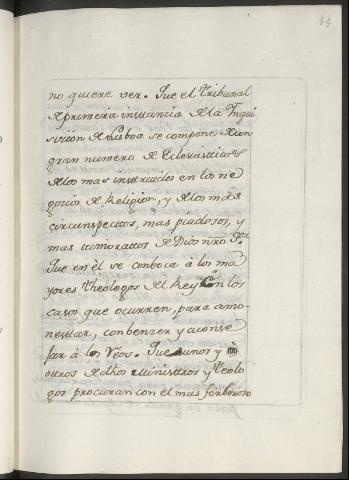 44
no quiere ver. Que el tribunal
de primera instanzia de la Inqui
sizion de Lisboa se compone de un
gran numero de Eclesiasticos
de los mas instruidos en los ne
gozios de Religion, y de los mas
circunspectos, mas piadosos, y
mas timoratos de Dios nro Sr.
Que en èl se conboca à los ma
yores theologos del Reyno en los
casos que ocurren, para amo-
nestar, conbenzer y aconse
jar à los Reos. Que unos y
otros de dhos Ministros y theolo
gos procuran con el mas ferboroso